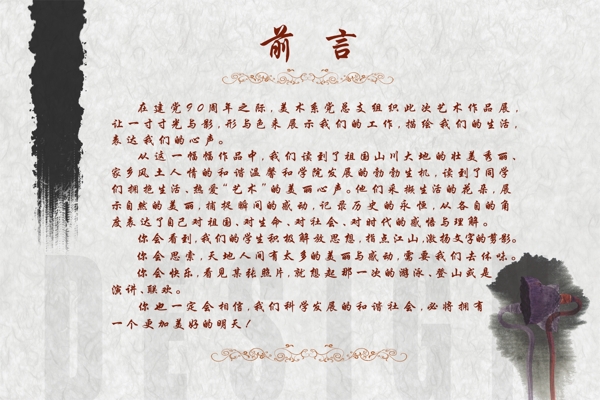 前 言
在建党90周年之际,美术系党总支组织此次艺术作品展,
让一寸寸光与影,形与色来展示我们的工作,描绘我们的生活,
表达我们的心声。
从这一幅幅作品中,我们读到了祖国山川大地的壮美秀丽、
家乡风土人情的和谐温馨和学院发展的勃勃生机,读到了同学
们拥抱生活、热爱“艺术”的美丽心声。他们采撷生活的花朵,展
示自然的美丽,捕捉瞬间的感动,记录历史的永恒,从各自的角
度表达了自己对祖国、对生命、对社会、对时代的感悟与理解。
你会看到,我们的学生积极解放思想,指点江山,激扬文字的剪影。
你会思索,天地人间有太多的美丽与感动,需要我们去体味。
你会快乐,看见某张照片,就想起那一次的游泳、登山或是
演讲、联欢。
你也一定会相信,我们科学发展的和谐社会,必将拥有
一个更加美好的明天!
DESIGN